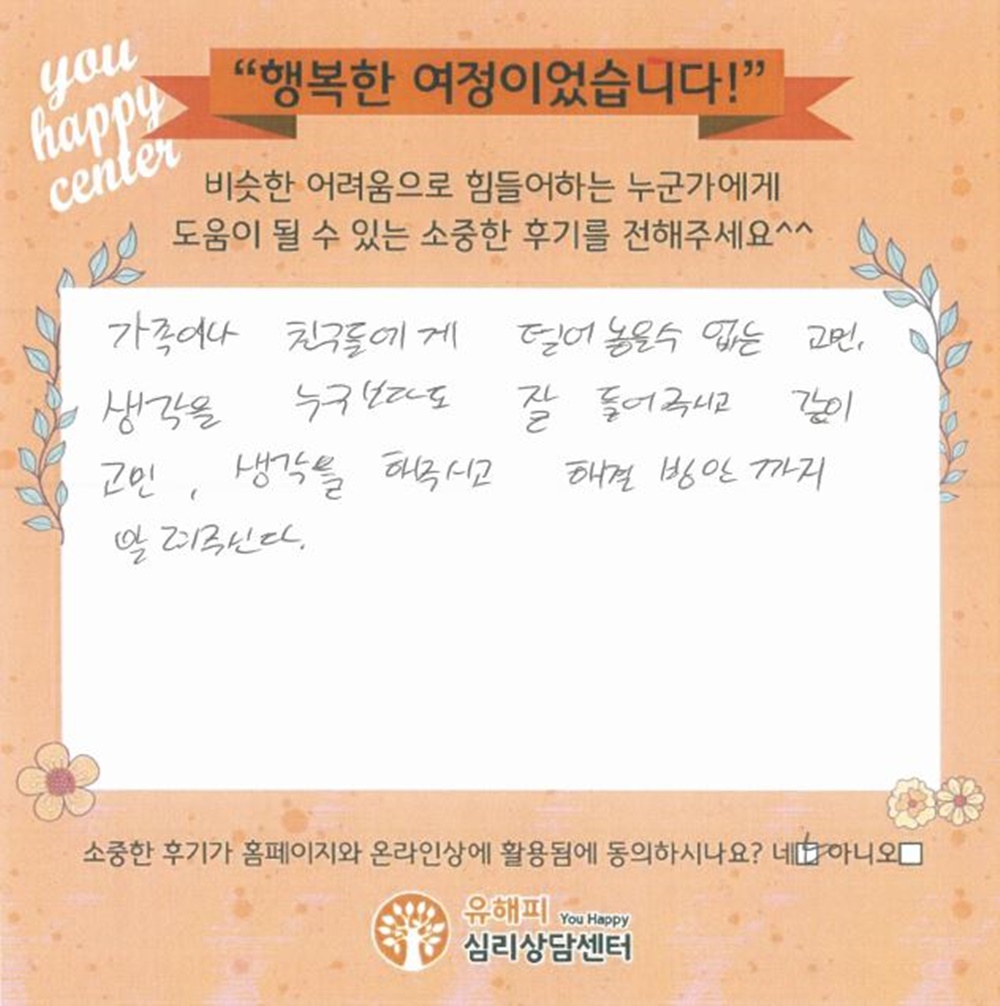 you
happy
center
“행복한 여정이었습니다!”
비슷한 어려움으로 힘들어하는 누군가에게
도움이 될 수 있는 소중한 후기를 전해주세요^^
가족이나 친구들에게 털어놓을수 없는 고민,
생각을 누구보다도 잘 들어주시고 같이
고민, 생각을 해주시고 해결 방안 까지
알려주신다.
소중한 후기가 홈페이지와 온라인상에 활용됨에 동의하시나요? 네☑ 아니오□
유해피 You Happy
심리상담센터